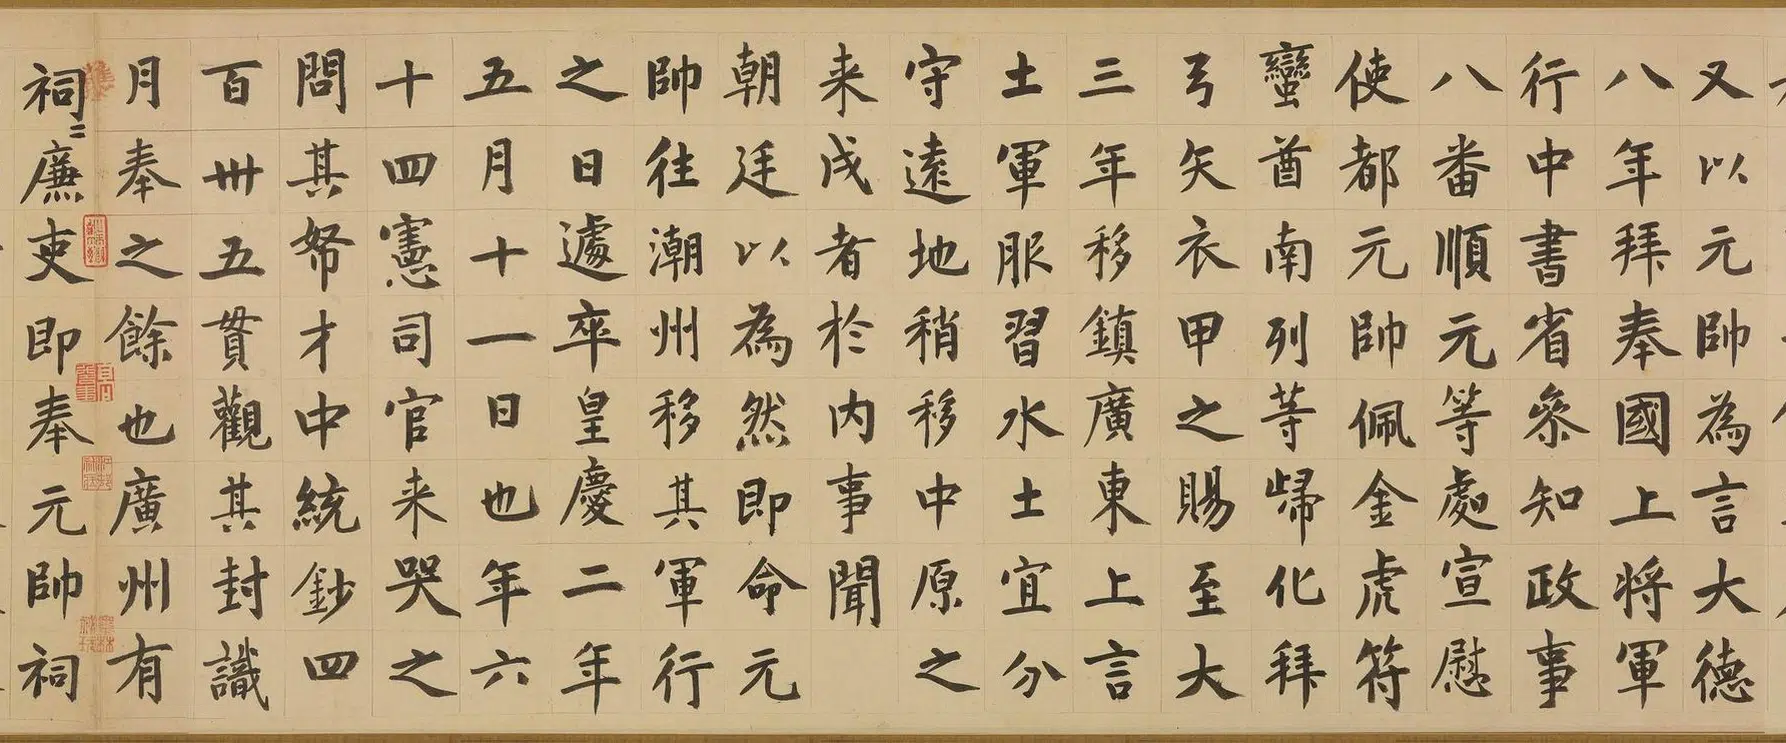 又以元帥為言大德
八年拜奉國上将軍
行中書省叅知政事
八番順元等處宣慰
使都元帥佩金虎符
蠻酋南列等歸化拜
弓矢衣甲之賜至大
三年移鎮廣東上言
土軍服習水土宜分
守遠地稍移中原之
来戍者於内事聞
朝廷以為然即命元
帥往潮州移其軍行
之日遽卒皇慶二年
五月十一日也年六
十四憲司官来哭之
問其帑才中統鈔四
百卅五貫觀其封識
月奉之餘也廣州有
祠〻廉吏即奉元帥祠